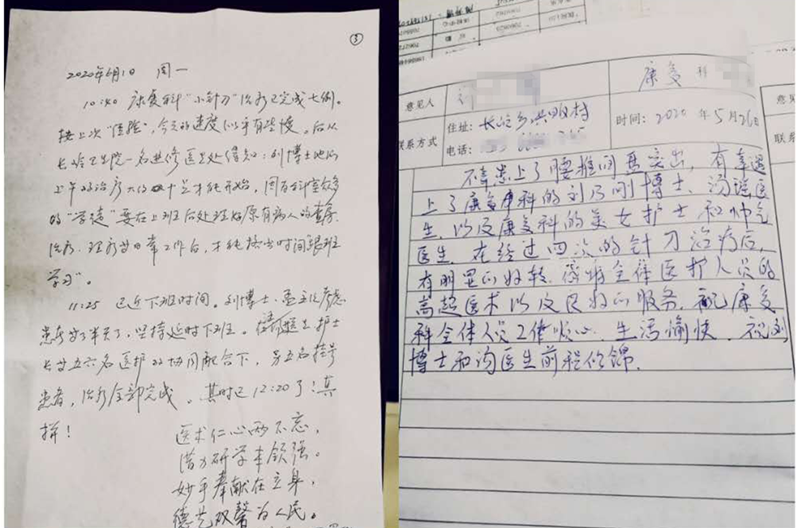 ③
2020年6月1日 周一
10:40 康复科"小针刀"治疗已完成七例。
按上次"经验",今天的速度似乎有些慢。后从
长岭卫生院一名进修医生处得知:刘博士他们
上午的治疗大约十点才能开始,因为科室众多
的"学徒"要在上班后处理好原有病人的查房
治疗
工作后,才能按当时间跟班
学习"。
11:25 已近下班时间。刘博士、孟主任考虑
患者等了半天了,坚持延时下班。
护士
长等五六名医护的协同配合下,另五名挂号
患者,治疗全部完成。其时已12:20了!真
拼!
医术仁心两不忘,
借力研学本领强。
妙手奉献在立身,
德艺双馨为人民。
意见人
康复 科
意见
联系方式
住址:长岭乡洪畈村
电话:
时间:2020年5月26日
联系
不幸患上了腰椎间盘突出,有幸遇
上了康复科的刘乃刚博士、汤医
生,以及康复科的美女护士和帅气
医生,在经过四次的针刀治疗后,
有明显的好转,感谢全体医护人员的
高超医术以及良好的服务,祝康复
科全体人员工作顺心,生活愉快,祝刘
博士和汤医生前程似锦.